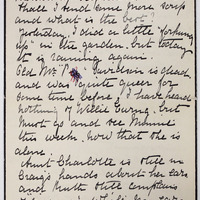 shall I send some more scrip
and what is the best?
yesterday. I did a little "forking
up" in the garden, but today
it is raining again.
Old Mrs is dead
and was quite queer for
some time before. I had heard
nothing of Willie Ewing, but
must go and see Maund
this week, now that she is
alone.
Aunt Charlotte is still in
Craig's hands about her ears
and Ruth still complains